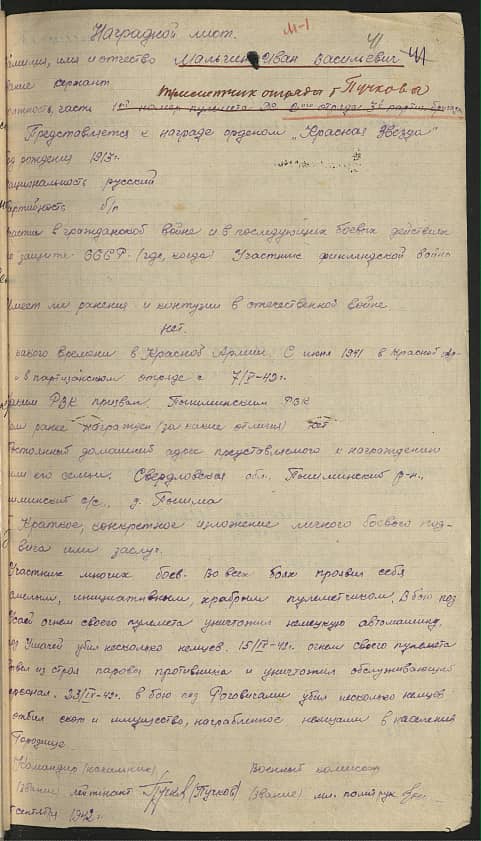 М-1
41
Наградной лист.
амилия, имя и отчество Мальчин Иван Васильевич 41
вание сержант
пулеметчик отряды т. Пучковы
олжность, часть 1ый номер пулемета отряда партиз. бригады
Представляется к награде орденом „Красная Звезда"
од рождения 1913г.
ациональность русский
артийность б/п
частие в гражданской войне и в последующих боевых действиях
о защите СССР (где, когда) Участник финляндской войны
Имеет ли ранения и контузии в отечественной войне
нет.
какого времени в Красной Армии С июня 1941 в Красной Ар-
в партизанском отряде с 7/V-42г.
аким РВК призван Пышминским РВК
ем ранее награжден (за какие отличия) нет
остоянный домашний адрес представляемого к награждению
или его семьи. Свердловская обл., Пышминский р-н,
шминский с/с, д. Пышма
Краткое, конкретное изложение личного боевого под-
вига или заслуг.
Участник многих боев. Во всех боях проявил себя
смелым, инициативным, храбрым пулеметчиком. В бою под
огнем своего пулемета уничтожил немецкую автомашину.
од убил несколько немцев. огнем своего пулемета
вывел из строя паровоз противника и уничтожил обслуживающий
ерсонал. в бою под Роговичами убил несколько немцев
отбил скот и имущество, награбленное немцами в населении
Городище.
Командир (начальник) Военный комиссар
(звание) лейтенант Пучков (Пучков) (звание) мл. политрук
сентября 1942г.